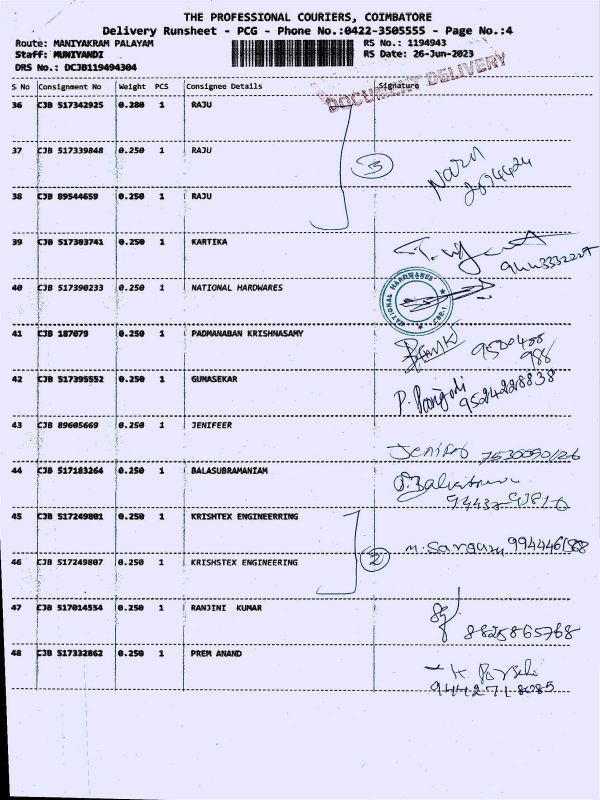 THE PROFESSIONAL COURIERS, COIMBATORE
Delivery Runsheet - PCG - Phone No.:0422-3505555 - Page No.:4
Route: MANIYAKRAM PALAYAM RS No.: 1194943
Staff: MUNIYANDI RS Date: 26-Jun-2023
DRS No.: DCJB119494304
DOCUMENT DELIVERY
S No Consignment No Weight PCS Consignee Details Signature
36 CJB 517342925 0.280 1 RAJU
37 CJB 517339848 0.250 1 RAJU 3
38 CJB 89544659 0.250 1 RAJU
39 CJB 517383741 0.250 1 KARTIKA
40 CJB 517390233 0.250 1 NATIONAL HARDWARES
NATIONAL HARDWARES
41 CJB 187079 0.250 1 PADMANABAN KRISHNASAMY
42 CJB 517395552 0.250 1 GUNASEKAR
9524228838
43 CJB 89605669 0.250 1 JENIFEER
44 CJB 517183264 0.250 1 BALASUBRAMANIAM
45 CJB 517249801 0.250 1 KRISHTEX ENGINEERRING
46 CJB 517249807 0.250 1 KRISHSTEX ENGINEERING 2
47 CJB 517014554 0.250 1 RANJINI KUMAR
8825865768
48 CJB 517332862 0.250 1 PREM ANAND